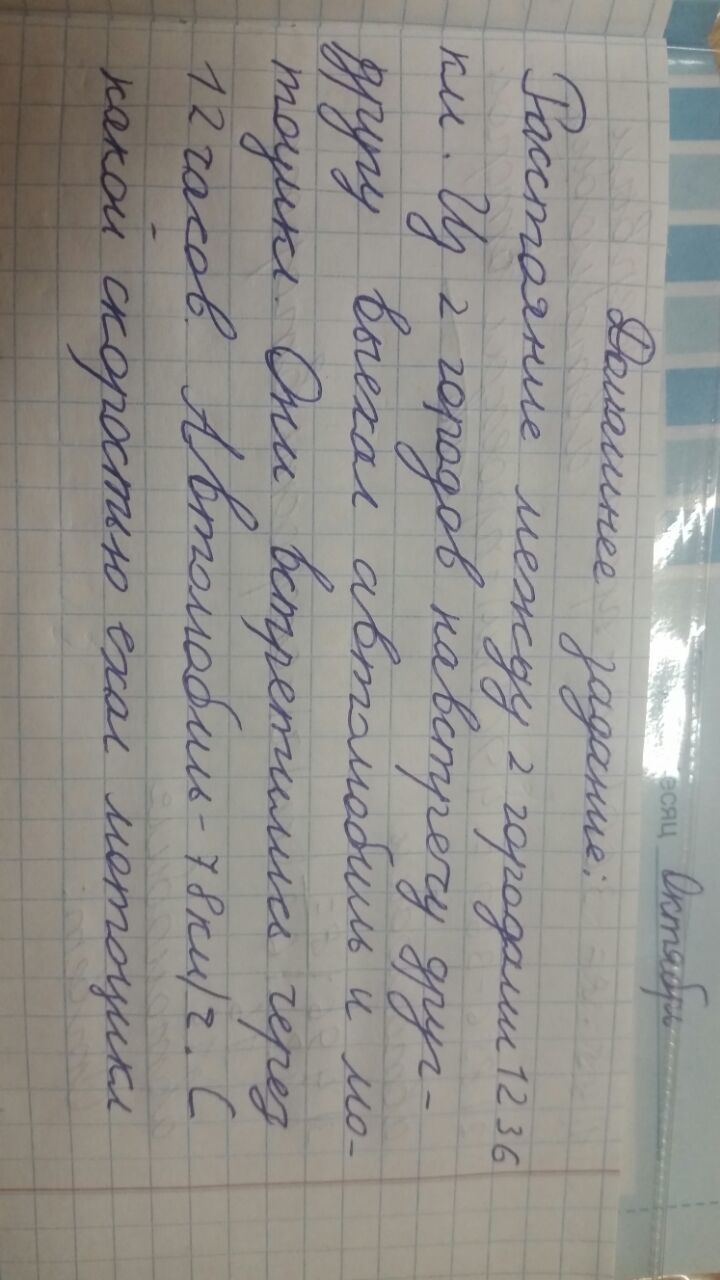 есяц Октябрь
Домашнее задание:
Расстояние между 2 городами 1236
км. Из 2 городов навстречу друг-
другу выехал автомобиль и мо-
тоцикл. Они встретились через
12 часов. Автомобиль - 78км/ч. С
какой скоростью ехал мотоцикл